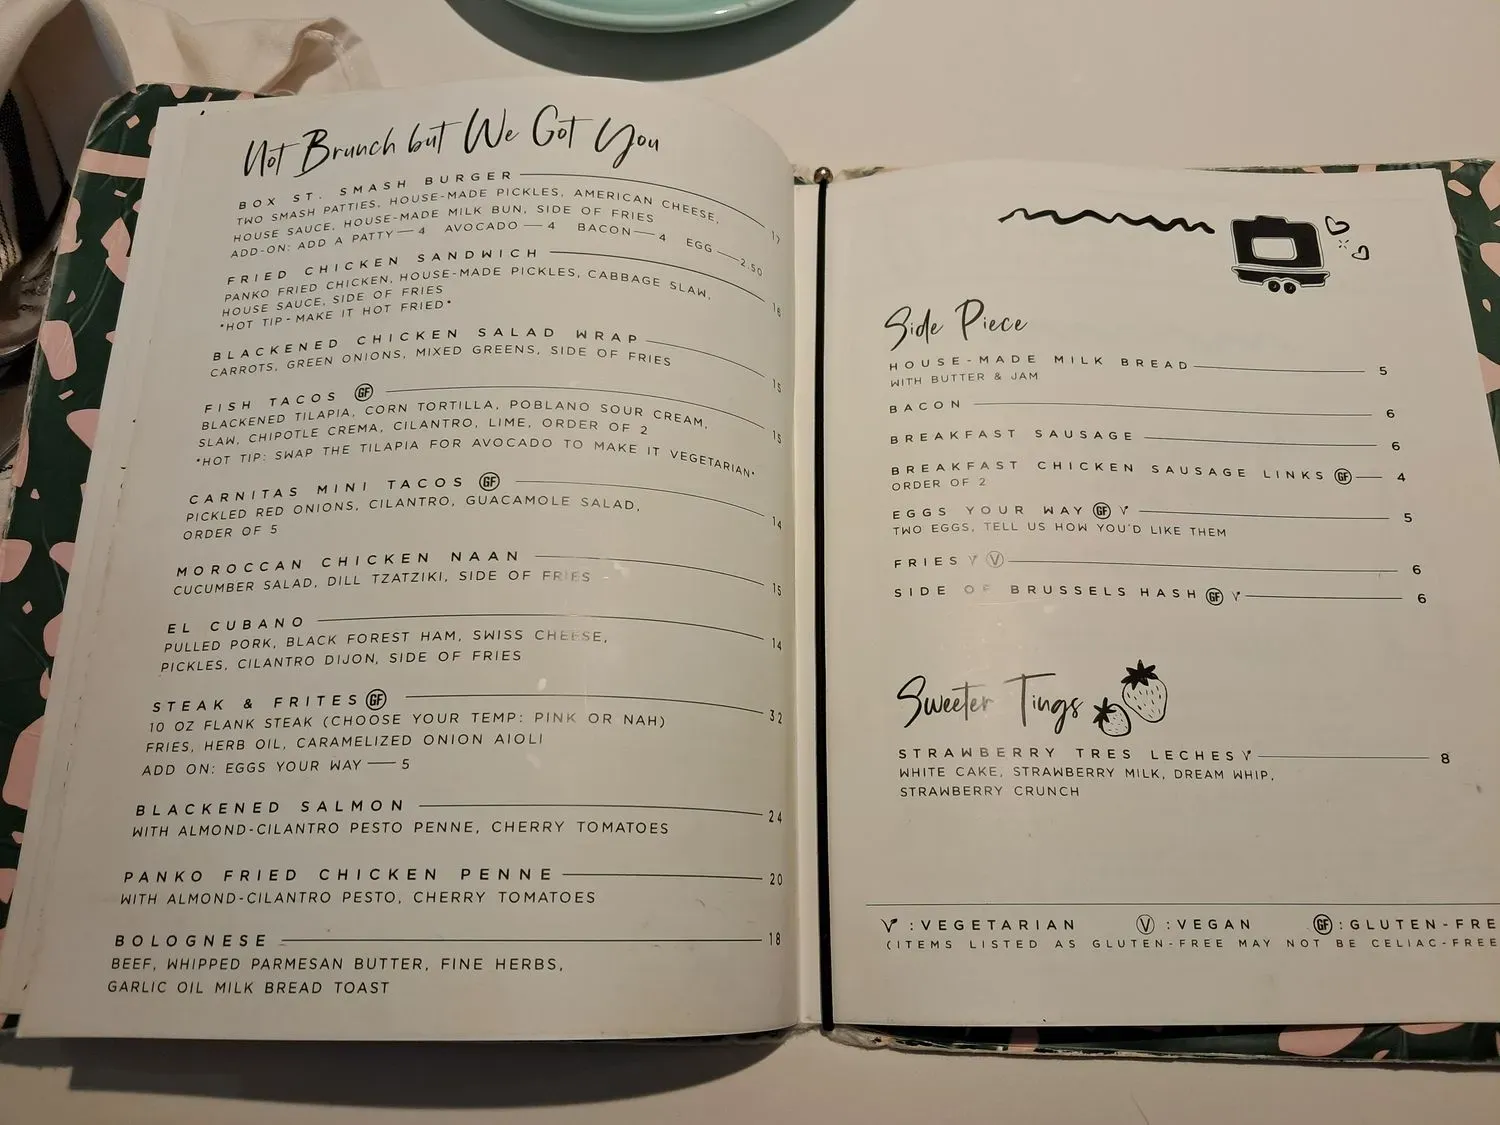 Not Brunch but We Got You
BOX ST. SMASH BURGER 17
TWO SMASH PATTIES, HOUSE-MADE PICKLES, AMERICAN CHEESE,
HOUSE SAUCE, HOUSE-MADE MILK BUN, SIDE OF FRIES
ADD-ON: ADD A PATTY — 4 AVOCADO — 4 BACON — 4 EGG — 2.50
FRIED CHICKEN SANDWICH 16
PANKO FRIED CHICKEN, HOUSE-MADE PICKLES, CABBAGE SLAW,
HOUSE SAUCE, SIDE OF FRIES
*HOT TIP - MAKE IT HOT FRIED*
BLACKENED CHICKEN SALAD WRAP 15
CARROTS, GREEN ONIONS, MIXED GREENS, SIDE OF FRIES
FISH TACOS GF 15
BLACKENED TILAPIA, CORN TORTILLA, POBLANO SOUR CREAM,
SLAW, CHIPOTLE CREMA, CILANTRO, LIME, ORDER OF 2
*HOT TIP: SWAP THE TILAPIA FOR AVOCADO TO MAKE IT VEGETARIAN*
CARNITAS MINI TACOS GF 14
PICKLED RED ONIONS, CILANTRO, GUACAMOLE SALAD,
ORDER OF 5
MOROCCAN CHICKEN NAAN 15
CUCUMBER SALAD, DILL TZATZIKI, SIDE OF FRIES
EL CUBANO 14
PULLED PORK, BLACK FOREST HAM, SWISS CHEESE,
PICKLES, CILANTRO DIJON, SIDE OF FRIES
STEAK & FRITES GF 32
10 OZ FLANK STEAK (CHOOSE YOUR TEMP: PINK OR NAH)
FRIES, HERB OIL, CARAMELIZED ONION AIOLI
ADD ON: EGGS YOUR WAY — 5
BLACKENED SALMON 24
WITH ALMOND-CILANTRO PESTO PENNE, CHERRY TOMATOES
PANKO FRIED CHICKEN PENNE 20
WITH ALMOND-CILANTRO PESTO, CHERRY TOMATOES
BOLOGNESE 18
BEEF, WHIPPED PARMESAN BUTTER, FINE HERBS,
GARLIC OIL MILK BREAD TOAST
Side Piece
HOUSE-MADE MILK BREAD 5
WITH BUTTER & JAM
BACON 6
BREAKFAST SAUSAGE 6
BREAKFAST CHICKEN SAUSAGE LINKS GF 4
ORDER OF 2
EGGS YOUR WAY GF V 5
TWO EGGS, TELL US HOW YOU'D LIKE THEM
FRIES V V 6
SIDE OF BRUSSELS HASH GF V 6
Sweeter Tings
STRAWBERRY TRES LECHES V 8
WHITE CAKE, STRAWBERRY MILK, DREAM WHIP,
STRAWBERRY CRUNCH
V : VEGETARIAN V : VEGAN GF : GLUTEN-FRE
(ITEMS LISTED AS GLUTEN-FREE MAY NOT BE CELIAC-FREE